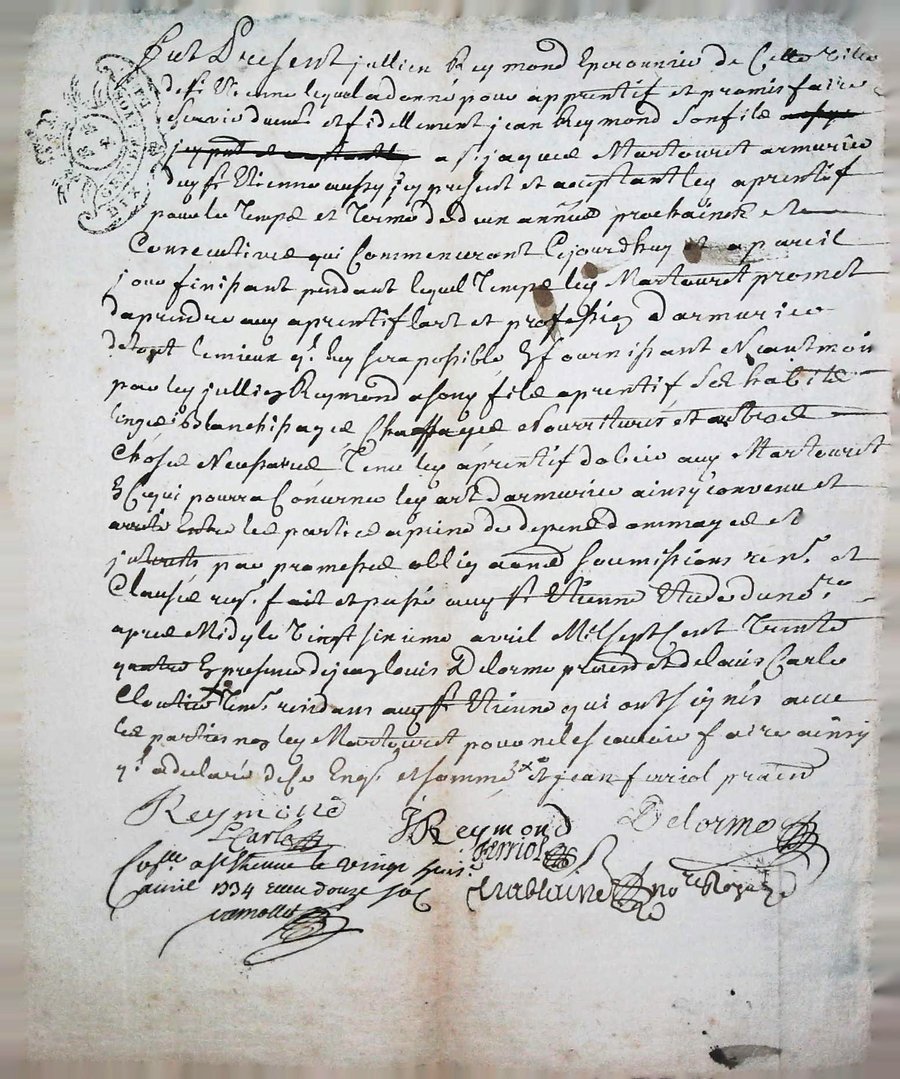 fut Present jullien Reymond Eperonnier de Cette ville
de St Etienne lequel a donné pour apprentif et promis faire
servir duem. et fidellement jean Reymond son fils
a Sr jaques Martouret armurier
du St Etienne aussy icy present et acceptant ley aprentif
pour le Temps et Terme de deux années prochaines et
Consecutives qui Commencront Cejourdhuy et a pareil
jour finissant pendant lequel Temps ley Martouret promet
daprendre auy aprentif lart et profession Darmurier
de tout le mieux ql. luy sera possible En fournissant Neantmoin
par ley jullien Reymond a son fils aprentif Ses habits
linges blanchissages Chauffages Nourritures et autres
Choses Necessaires Tenu ley aprentif dobeir auy Martouret
En Ce qui pourra Concerner ley art darmurier ainsy convenu et
arreté Entre les parties a peine de depens dommages et
interests par promesses obligaons soumissions renons. et
Clauses reqs. fait et passé auy St Etienne Etude du nore.
apres Midy le Vingt sixieme avril Mil sept Cent Trente
quatre En presence de jean louis Delorme pratn. et de louis Carle
Cloutier Tems. residans auy St Etienne qui ont signés avec
les parties non ley Martouret pour ne le scavoir faire ainsy
ql. a declaré de ce Enqs. et sommé et jean ferriol praten
Reymond
J Reymond
Delorme
L Carle
ferriol
Collé a St Etienne le vingt huit
avril 1734 reçu douze sols
ramolles
Chablain
nore Royal